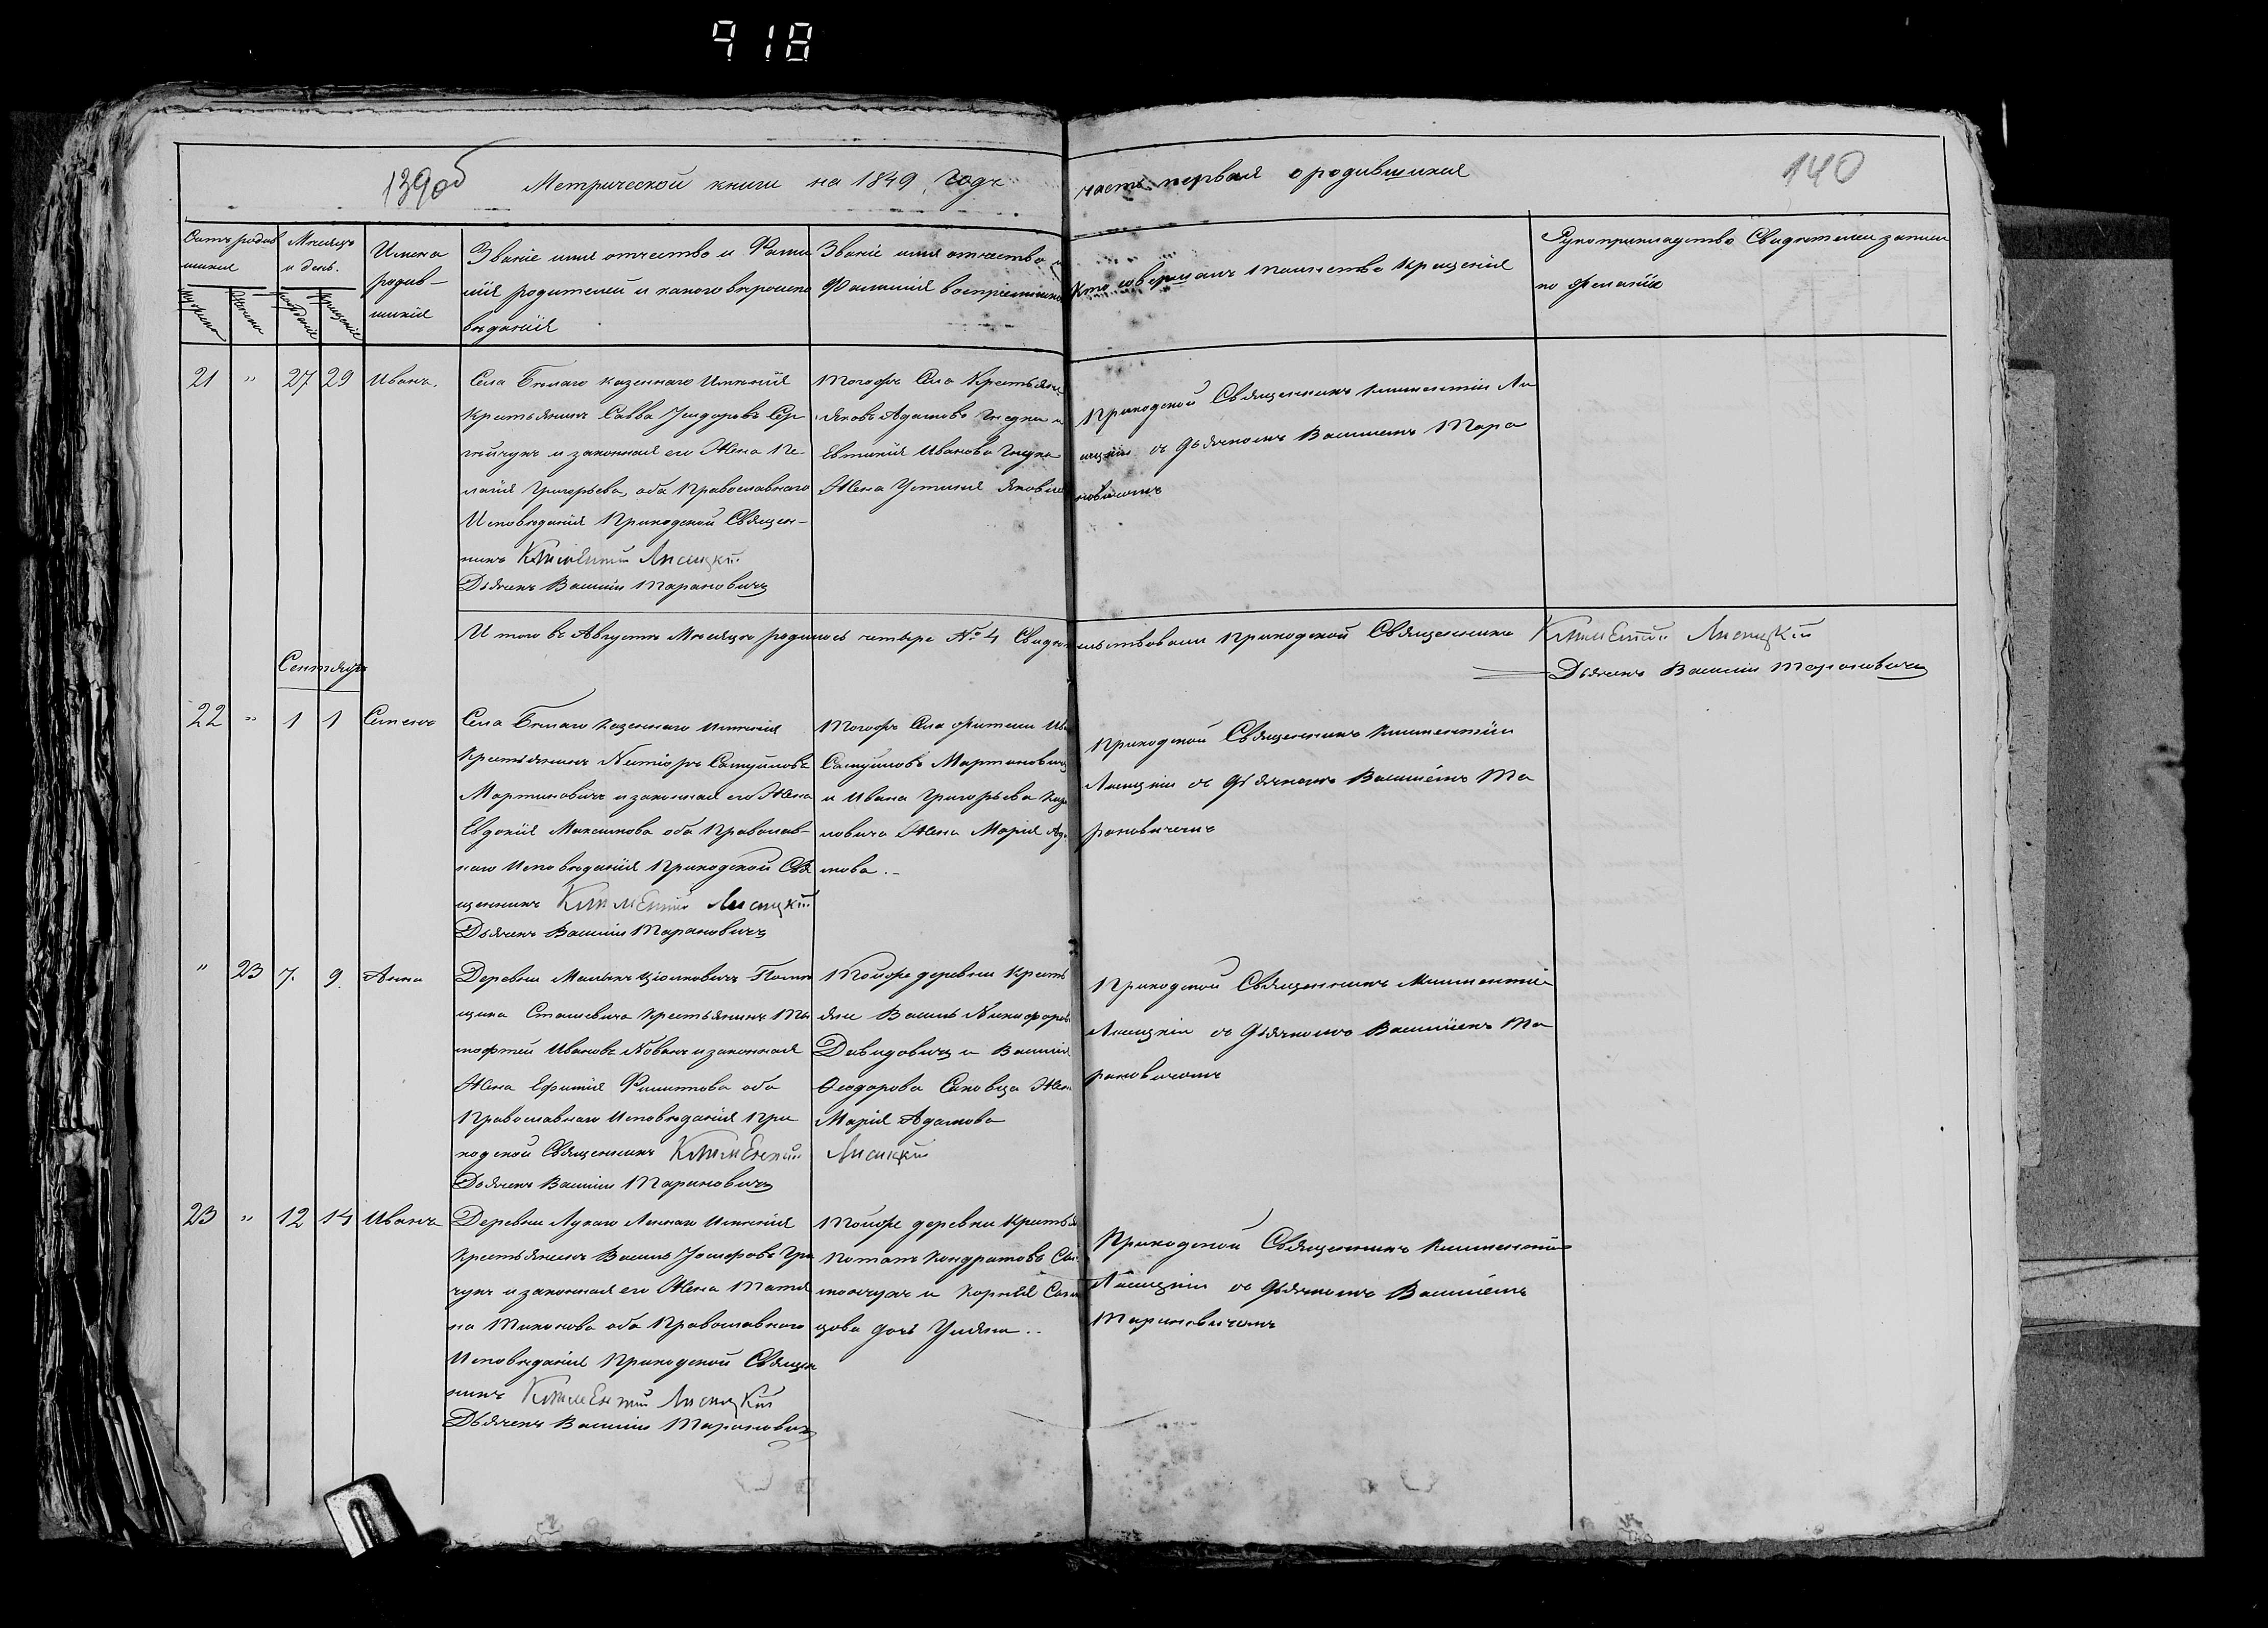 918
139об Метрической книги на 1849 годъ часть первая о родившихся 140
Счетъ родив
шихся
Мужеска
Женска
Мѣсяцъ
и день.
рожденія
крещенія
Имена
родив-
шихся
Званіе имя отчество и Фами
лія родителей и какого вѣроиспо
вѣданія
Званіе имя отчество и
Фамилія воспріемниковъ
Кто совершалъ таинство крещенія
Рукоприкладство Свидѣтелей записи
по желанію
21 " 27 29 Иванъ.
Села Бѣлаго казеннаго Имѣнія
Крестьянинъ Савва Исидоровъ Сер
гѣйчукъ и законная его Жена Пе-
лагія Григорьева, оба Православнаго
Исповѣданія Приходской Священ-
никъ Климентій Лисицкій
Дьячекъ Василій Тарановичъ
Тогожъ Села Крестьяни
Яковъ Адамовъ и
Евтихія Иванова
Жена Устинія Яковлева
Приходской Священникъ Климентій Ли
сицкій съ дьячкомъ Василіемъ Тара
новичомъ
Итого въ Августѣ Мѣсяцѣ родилось четыре № 4 Свидѣтельствовали Приходской Священникъ Климентій Лисицкій
Дьячекъ Василій Тарановичъ
Сентябрь
22 " 1 1 Семенъ
Села Бѣлаго казеннаго Имѣнія
Крестьянинъ Самуиловъ
Мартиновичъ и законная его Жена
Евдокія Максимова оба Православ-
наго Исповѣданія Приходской Свя
щенникъ Климентій Лисицкій
Дьячекъ Василій Тарановичъ
Тогожъ Села жители
Самуиловъ Мартиновичъ
и Ивана Григорьева
ловича Жена Марія Ада
мова.-
Приходской Священникъ Климентій
Лисицкій съ дьячкомъ Василіемъ Та
рановичомъ
" 23 7. 9. Анна
Деревни Помѣ
щика Сташевича Крестьянинъ Ти
мофтей Ивановъ и законная
Жена Ефимія Филиппова оба
Православнаго Исповѣданія При
ходской Священникъ Климентій Лисицкій
Дьячекъ Василій Тарановичъ
Тойже деревни Кресть
яне Василь Никифоровъ
Давидовичъ и Василія
Ѳеодорова Жена
Марія Адамова
Приходской Священникъ Климентій
Лисицкій съ дьячкомъ Василіемъ Та
рановичомъ
23 " 12 14 Иванъ
Деревни Имѣнія
Крестьянинъ Василь Іосифовъ Гри
чукъ и законная его Жена Татья
на Тихонова оба Православнаго
Исповѣданія Приходской Священ
никъ Климентій Лисицкій
Дьячекъ Василій Тарановичъ
Тойже деревни Крестья
Потапъ Кондратовъ
и Корнія
цова дочь Уліяна..
Приходской Священникъ Климентій
Лисицкій съ дьячкомъ Василіемъ
Тарановичомъ